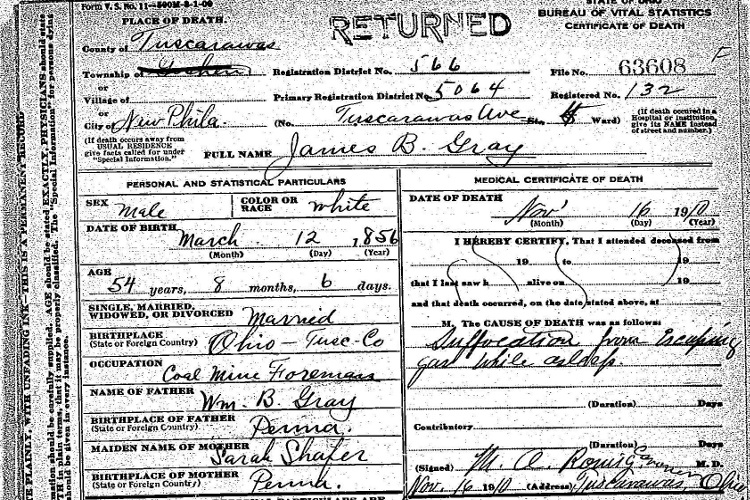 Form V. S. No. 11-500M-3-1-09
STATE OF OHIO
BUREAU OF VITAL STATISTICS
CERTIFICATE OF DEATH
RETURNED
PLACE OF DEATH.
County of Tuscarawas
Township of Goshen Registration District No. 566 File No. 63608 F
or
Village of Primary Registration District No. 5064 Registered No. 132
or
City of New Phila. (No. Tuscarawas Ave St., Ward)
(If death occurs away from USUAL RESIDENCE give facts called for under "Special Information.")
(If death occured in a Hospital or institution, give its NAME instead of street and number.)
FULL NAME James B. Gray
PERSONAL AND STATISTICAL PARTICULARS
SEX Male COLOR OR RACE White
DATE OF BIRTH March 12 1856
(Month) (Day) (Year)
AGE 54 years, 8 months, 6 days.
SINGLE, MARRIED, WIDOWED, OR DIVORCED Married
BIRTHPLACE (State or Foreign Country) Ohio - Tusc-Co
OCCUPATION Coal Mine Foreman
NAME OF FATHER Wm. B. Gray
BIRTHPLACE OF FATHER (State or Foreign Country) Penna.
MAIDEN NAME OF MOTHER Sarah Shafer
BIRTHPLACE OF MOTHER (State or Foreign Country) Penna.
MEDICAL CERTIFICATE OF DEATH
DATE OF DEATH
Nov' 16 1910
(Month) (Day) (Year)
I HEREBY CERTIFY, That I attended deceased from
19 to 19
that I last saw h alive on 19
and that death occurred, on the date stated above, at
M. The CAUSE OF DEATH was as follows:
Suffocation from Escaping
gas while asleep.
(Duration) Days
Contributory
(Duration) Days
(Signed) M. A. Coroner M. D.
Nov. 16 1910 (Address) Tuscarawas, Ohio